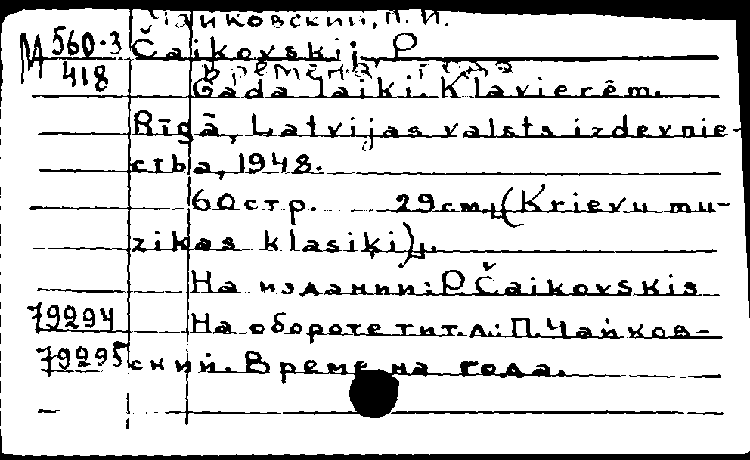 Чайковский, П. И.
М 560-3 Čaikovskij, P
418 Времена года
Gada laiki. Klavierēm.
Rīgā, Latvijas valsts izdevnie-
cība, 1948.
60 стр. 29 см. (Krievu mu-
zikas klasiķi).
На издании: P. Čaikovskis
79294 На обороте тит. л.: П. Чайков-
79295 ский. Времена года.